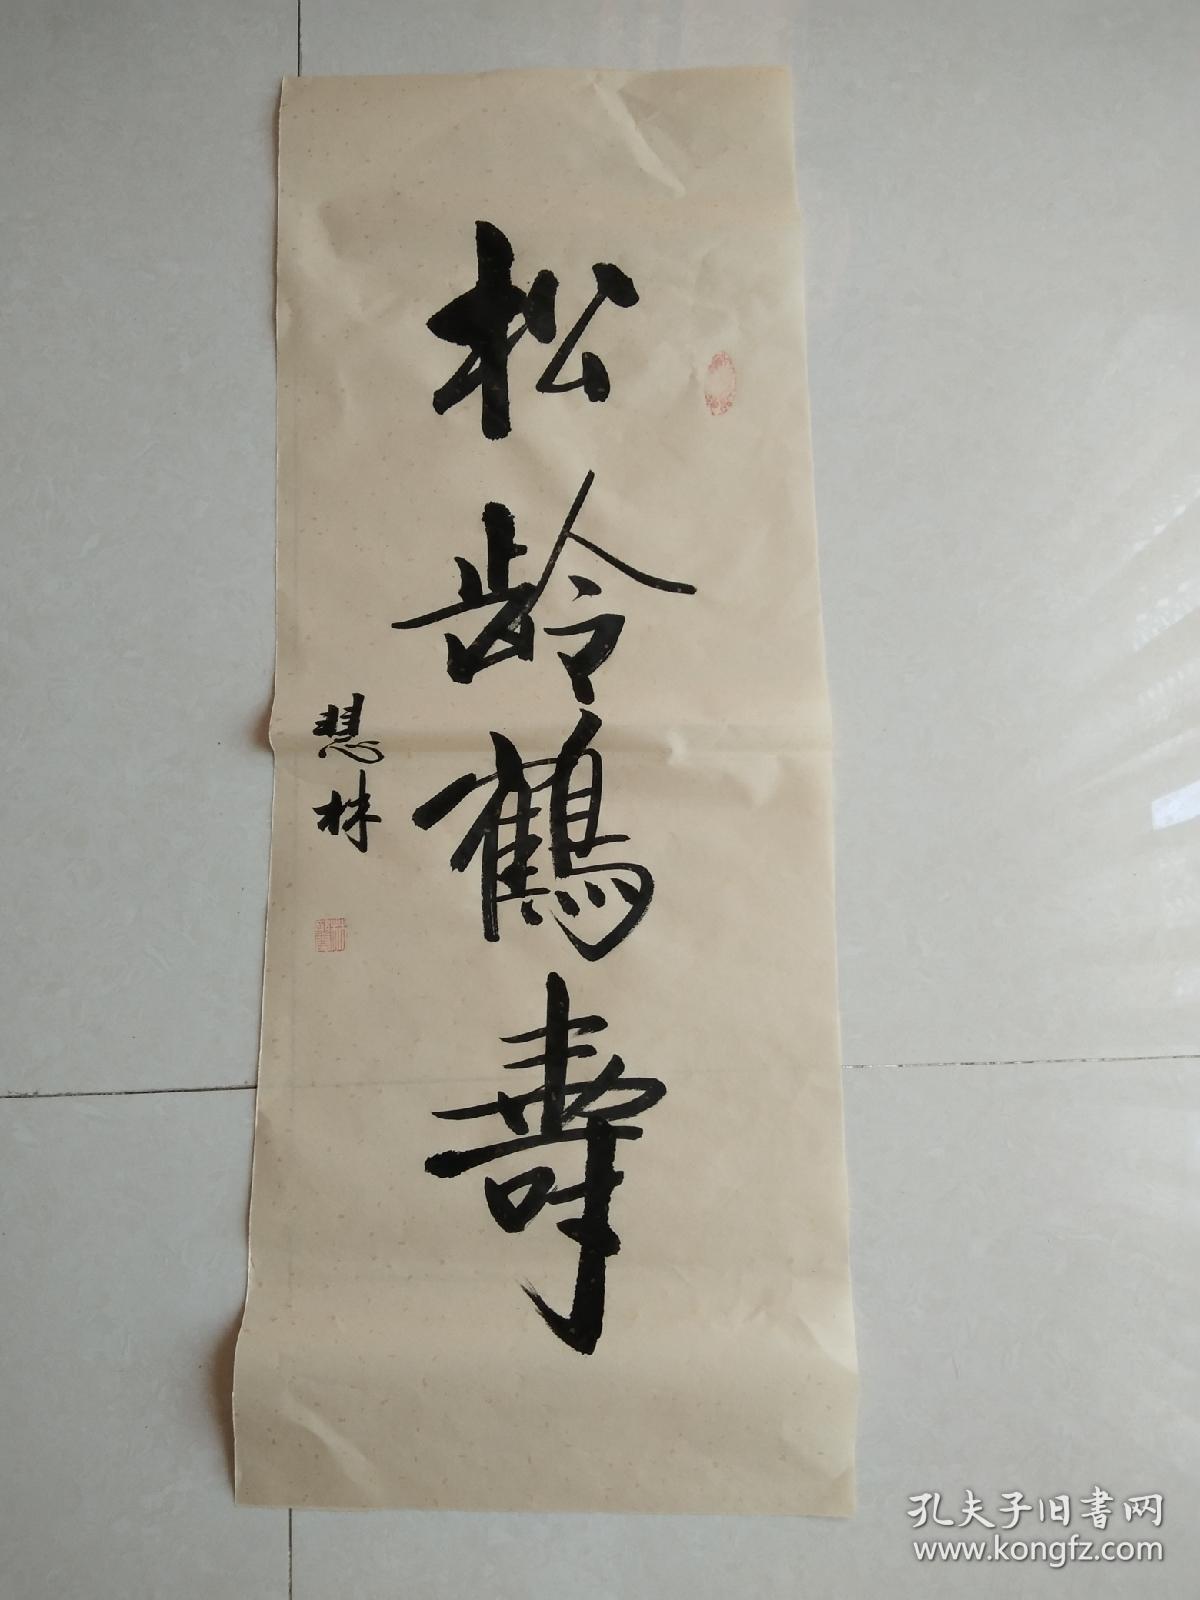 松龄鶴壽
慧林
孔夫子旧書网
www.kongfz.com